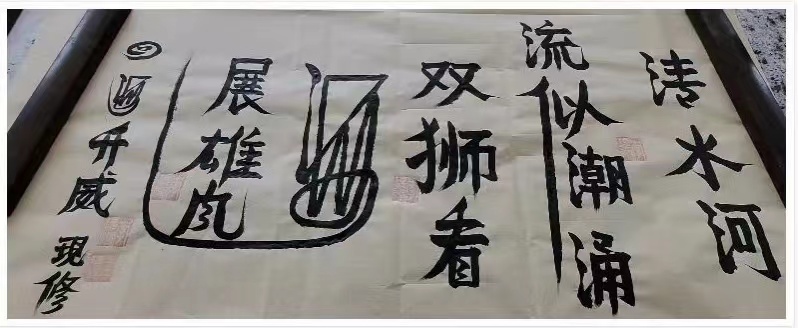 清水河
流似潮涌
双狮看
展雄风
开威
现修